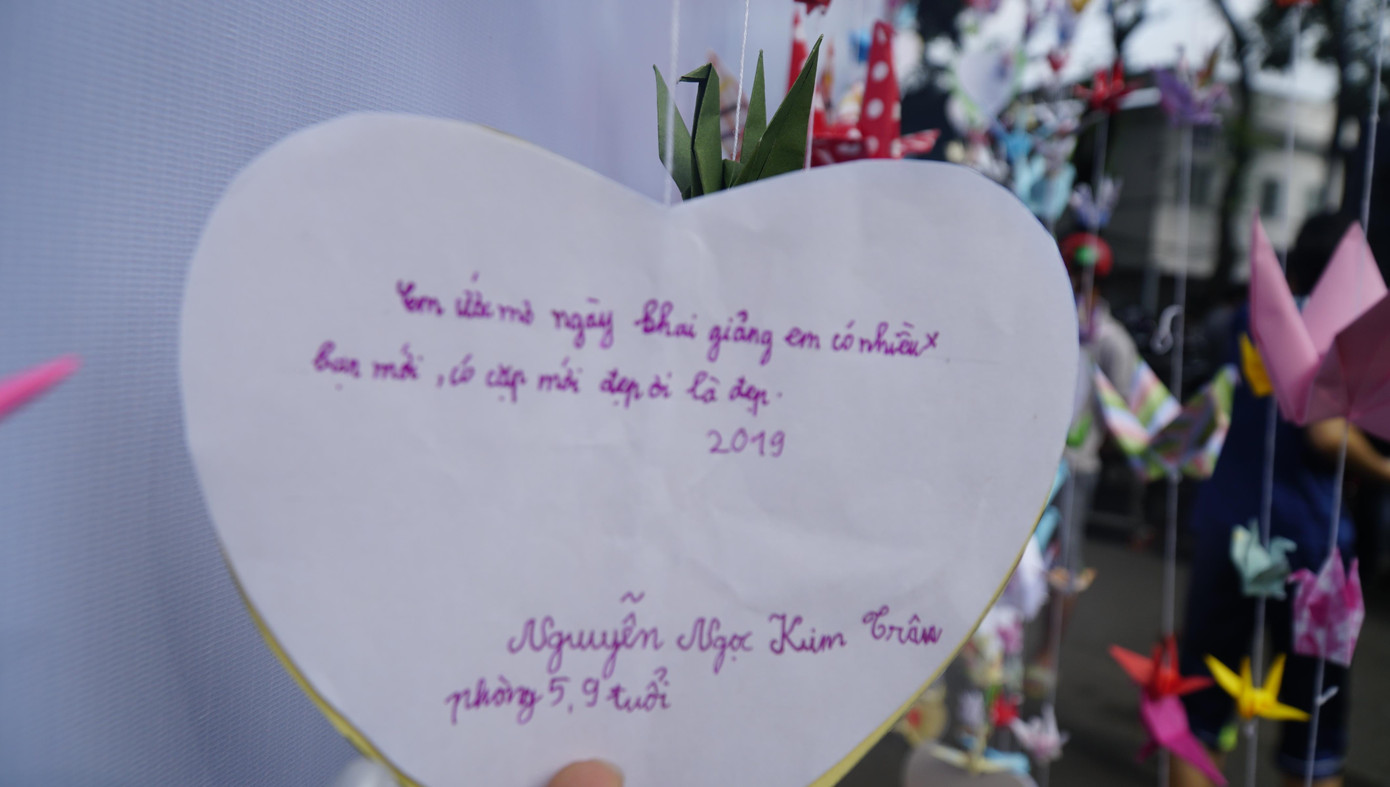 Em ước mơ ngày khai giảng em có nhiều
bạn mới, có cặp mới đẹp ơi là đẹp.
2019
Nguyễn Ngọc Kim Trân
phòng 5, 9 tuổi